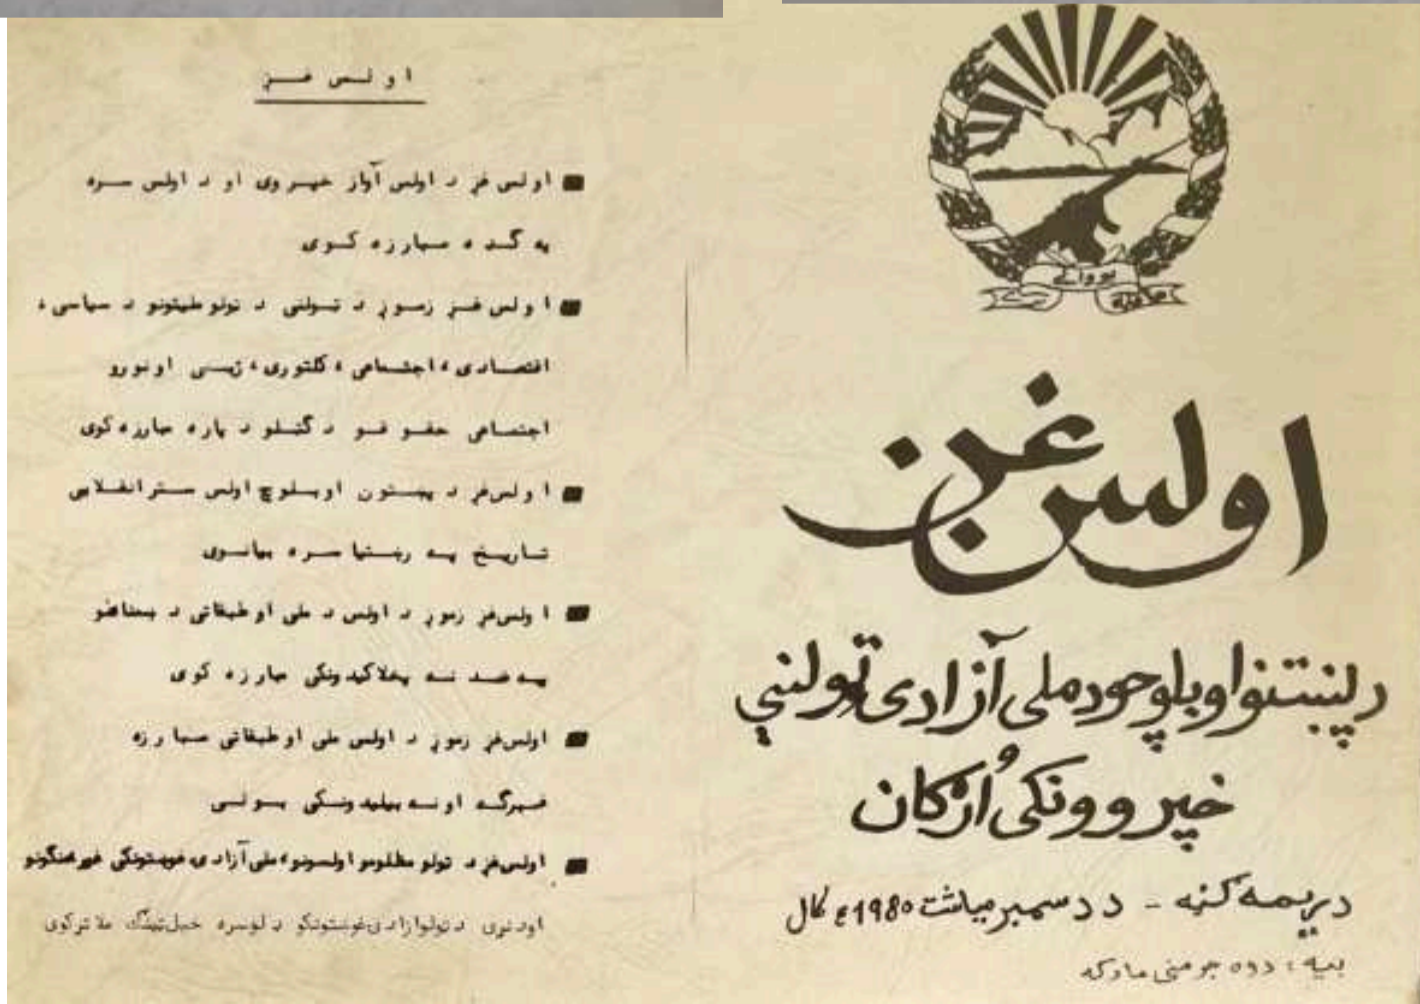 اولس غږ
د پښتنو او بلوچو د ملی آزادی ټولنې
خپروونکی اُرګان
دریمه ګڼه - د دسمبر میاشت 1980ع کال
بیه : دوه جرمنی مارکه
اولس غږ
■ اولس غږ د اولس آواز خپروی او د اولس سره
په ګډه مبارزه کوی
■ اولس غږ زموږ د ټولنی د ټولو طبقونو د سیاسی ،
اقتصادی ، اجتماعی ، کلتوری ، ژبنی او نورو
اجتماعی حقوقو د ګټلو د پاره مبارزه کوی
■ اولس غږ د پښتون او بلوچ اولس ستر انقلابی
تاریخ په رښتیا سره بیانوی
■ اولس غږ زموږ د اولس د ملی او طبقاتی دښمنانو
په ضد نه پخلاکیدونکی مبارزه کوی
■ اولس غږ زموږ د اولس ملی او طبقاتی مبارزه
ګډه او نه بیلیدونکی بولی
■ اولس غږ د ټولو مظلومو اولسونو ، ملی آزادی غوښتونکی غورځنګونو
او د نړی د ټولو ازادی غوښتونکو د لوسره خپل ټینګ ملاتړ کوی